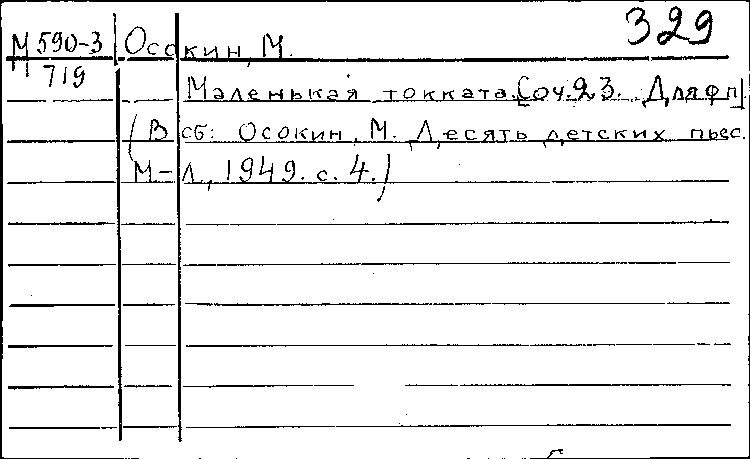 329
М 590-3 Осокин, М.
719
Маленькая токката. [Соч. 23. Для фп]
(В сб: Осокин, М. Десять детских пьес.
М-Л., 1949. с. 4.)